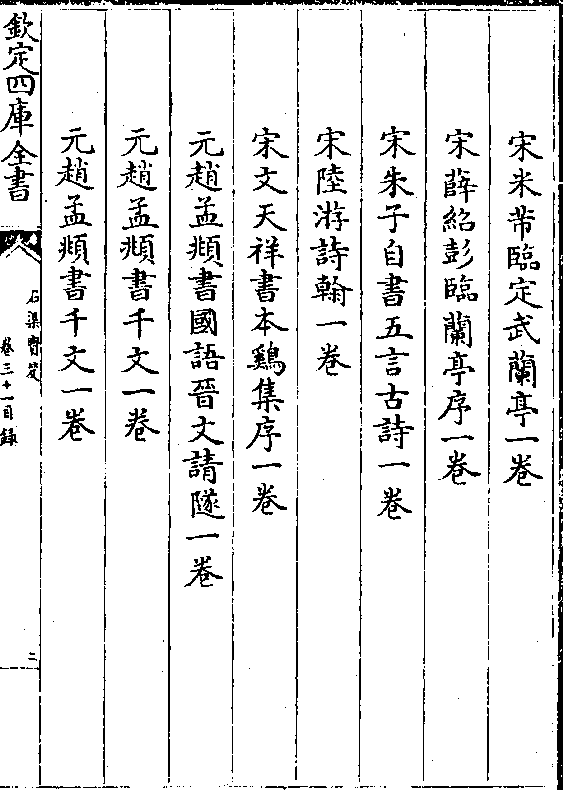 宋米芾臨定武蘭亭一卷
宋薛紹彭臨蘭亭序一卷
宋朱子自書五言古詩一卷
宋陸游詩翰一卷
宋文天祥書本鷄集序一卷
元趙孟頫書國語晉文請隧一卷
元趙孟頫書千文一卷
元趙孟頫書千文一卷
欽定四庫全書
石渠寳笈
卷三十一目錄
二